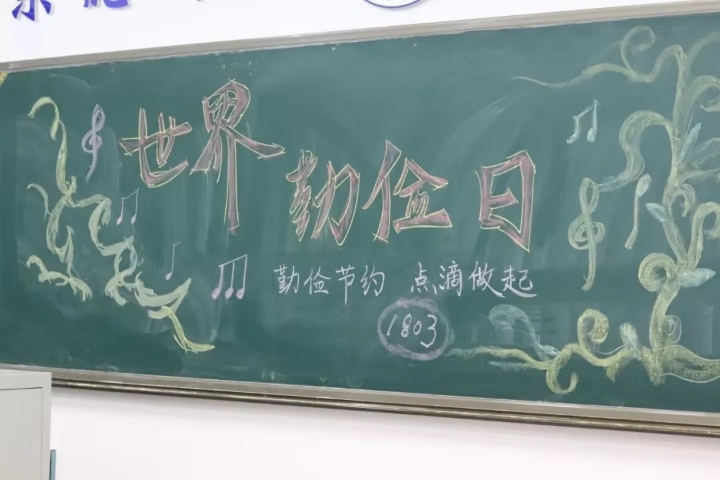 世界
勤俭日
勤俭节约 点滴做起
1803